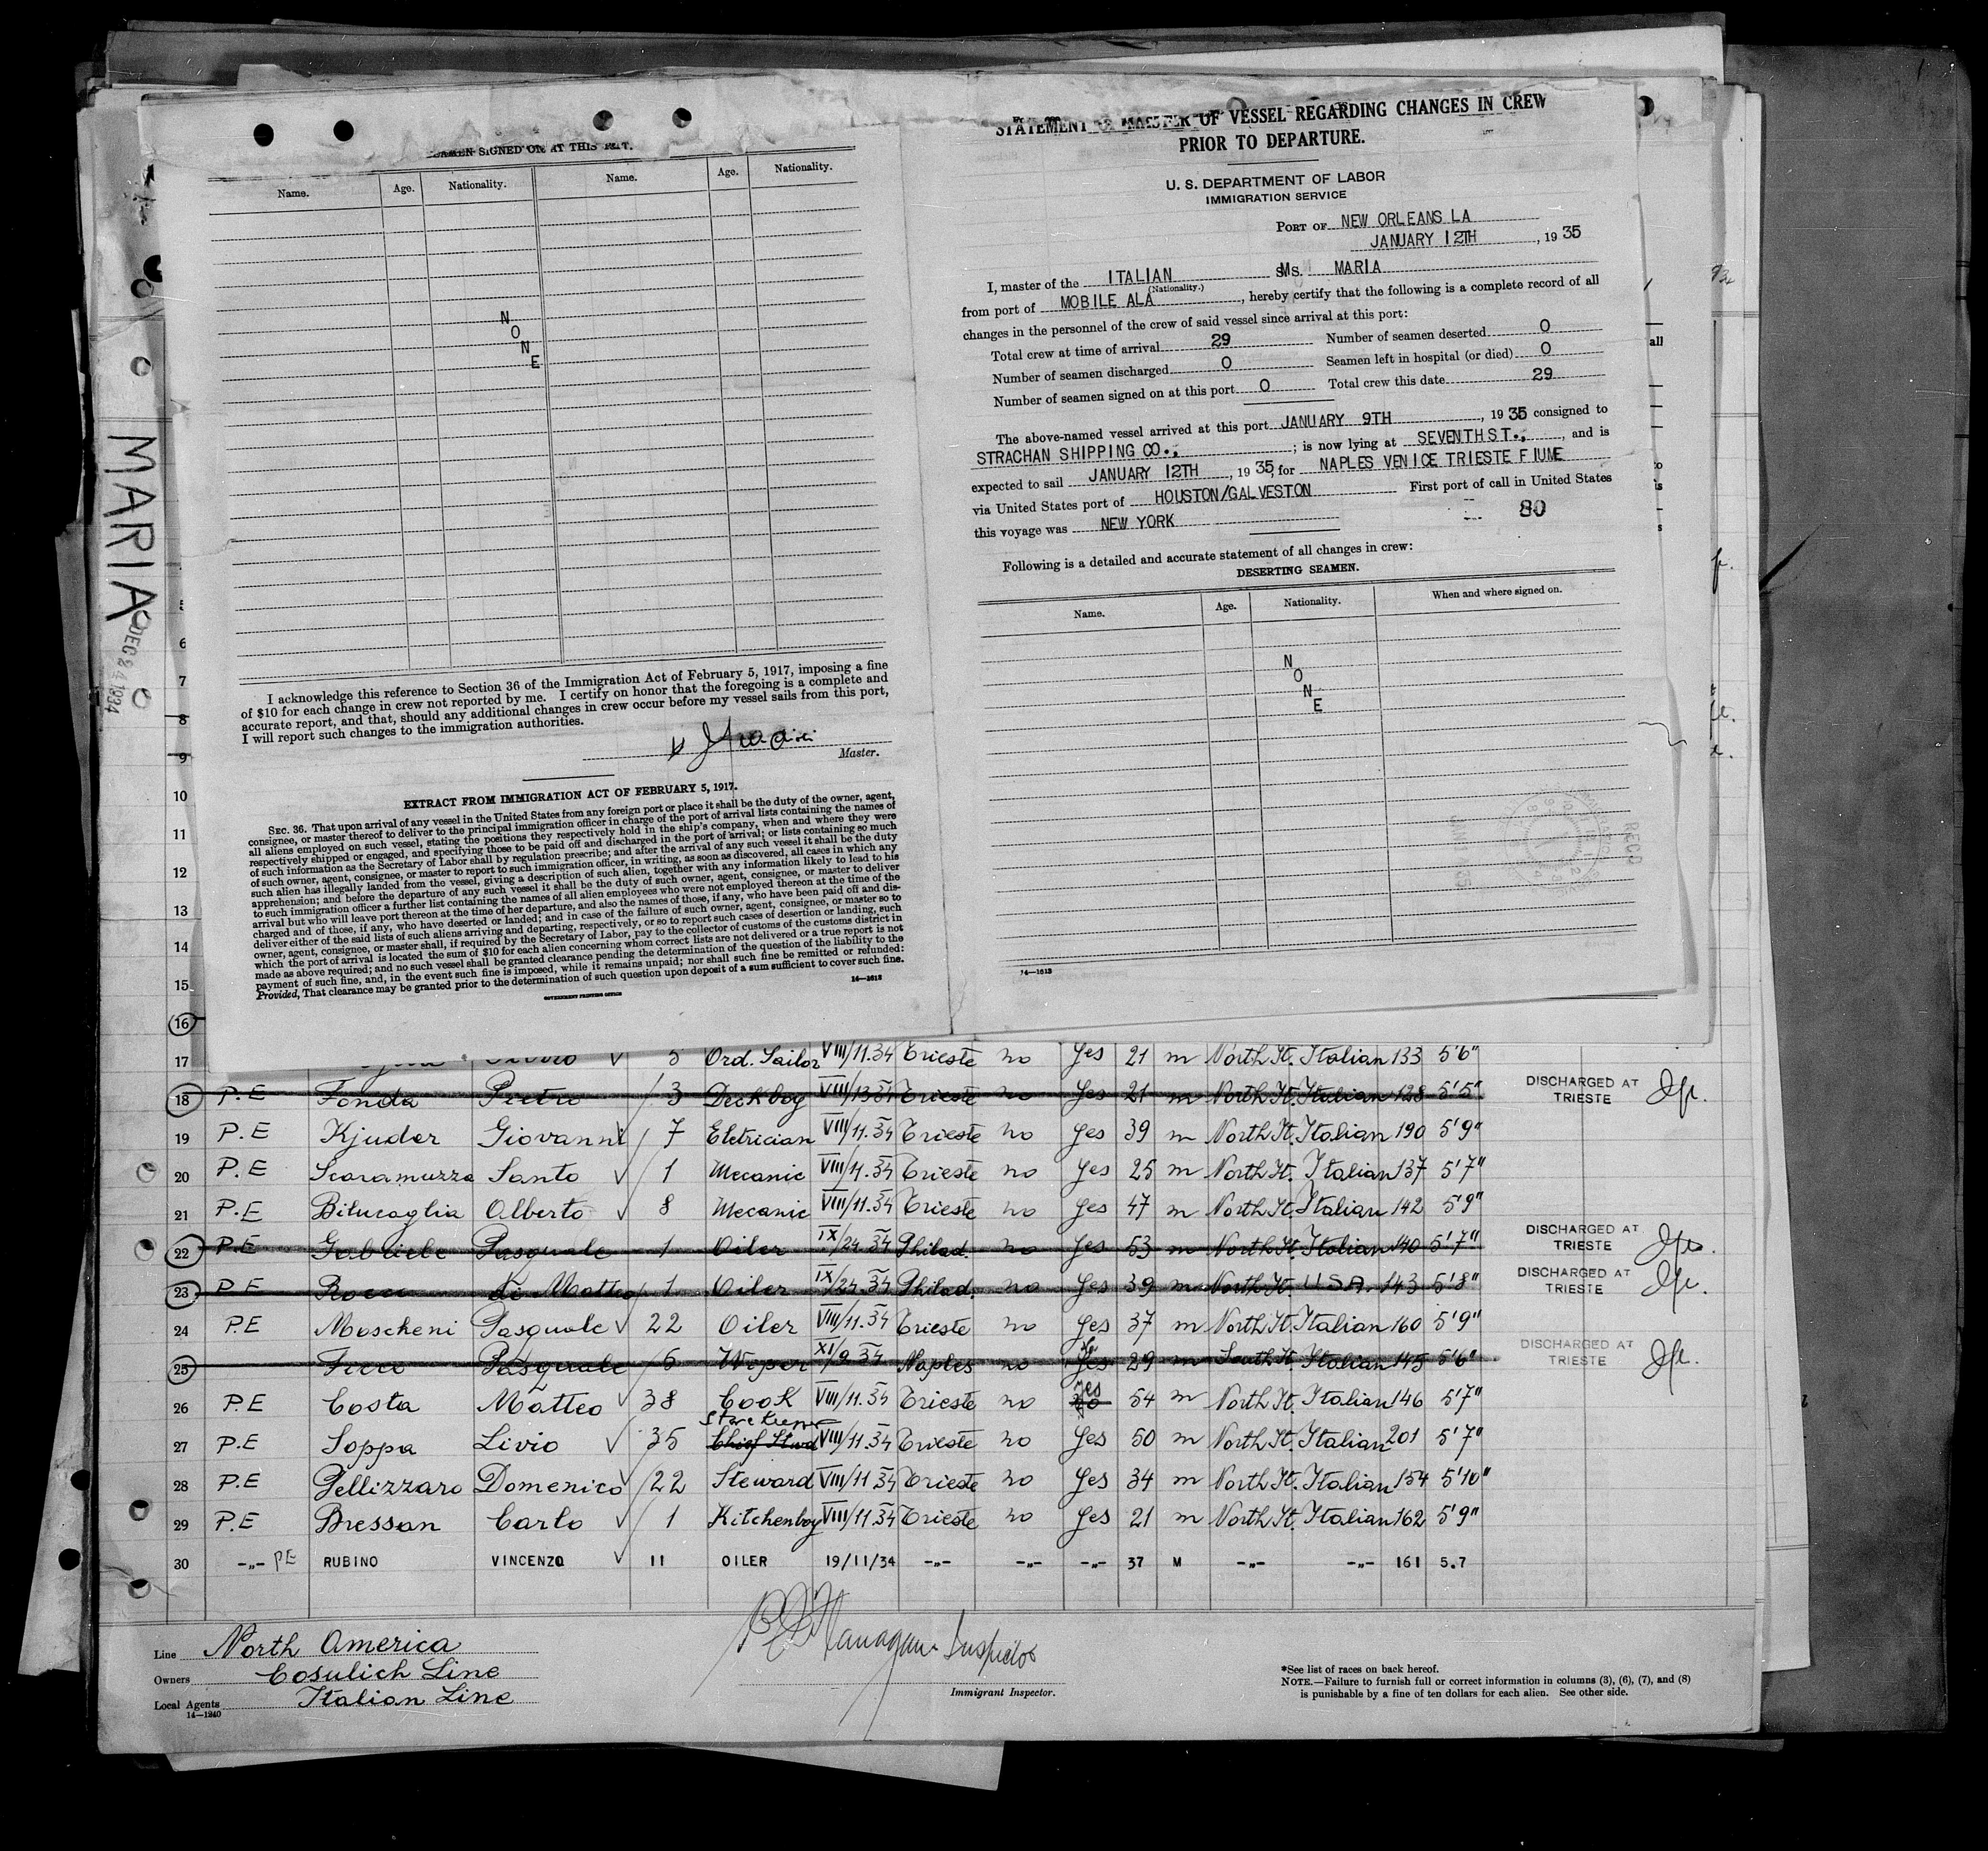 SEAMEN SIGNED ON AT THIS PORT.
Name. Age. Nationality. Name. Age. Nationality.
N
O
N
E
I acknowledge this reference to Section 36 of the Immigration Act of February 5, 1917, imposing a fine
of $10 for each change in crew not reported by me. I certify on honor that the foregoing is a complete and
accurate report, and that, should any additional changes in crew occur before my vessel sails from this port,
I will report such changes to the immigration authorities.
Master.
EXTRACT FROM IMMIGRATION ACT OF FEBRUARY 5, 1917.
SEC. 36. That upon arrival of any vessel in the United States from any foreign port or place it shall be the duty of the owner, agent,
consignee, or master thereof to deliver to the principal immigration officer in charge of the port of arrival lists containing the names of
all aliens employed on such vessel, stating the positions they respectively hold in the ship's company, when and where they were
respectively shipped or engaged, and specifying those to be paid off and discharged in the port of arrival; or lists containing so much
of such information as the Secretary of Labor shall by regulation prescribe; and after the arrival of any such vessel it shall be the duty
of such owner, agent, consignee, or master to report to such immigration officer, in writing, as soon as discovered, all cases in which any
such alien has illegally landed from the vessel, giving a description of such alien, together with any information likely to lead to his
apprehension; and before the departure of any such vessel it shall be the duty of such owner, agent, consignee, or master to deliver
to such immigration officer a further list containing the names of all alien employees who were not employed thereon at the time of the
arrival but who will leave port thereon at the time of her departure, and also the names of those, if any, who have been paid off and dis-
charged and of those, if any, who have deserted or landed; and in case of the failure of such owner, agent, consignee, or master so to
deliver either of the said lists of such aliens arriving and departing, respectively, or so to report such cases of desertion or landing, such
owner, agent, consignee, or master shall, if required by the Secretary of Labor, pay to the collector of customs of the customs district in
which the port of arrival is located the sum of $10 for each alien concerning whom correct lists are not delivered or a true report is not
made as above required; and no such vessel shall be granted clearance pending the determination of the question of the liability to the
payment of such fine, and, in the event such fine is imposed, while it remains unpaid; nor shall such fine be remitted or refunded:
Provided, That clearance may be granted prior to the determination of such question upon deposit of a sum sufficient to cover such fine.
GOVERNMENT PRINTING OFFICE
14—1613
STATEMENT OF MASTER OF VESSEL REGARDING CHANGES IN CREW
PRIOR TO DEPARTURE.
U. S. DEPARTMENT OF LABOR
IMMIGRATION SERVICE
PORT OF NEW ORLEANS LA
JANUARY 12TH, 1935
I, master of the ITALIAN MS. MARIA
(Nationality.)
from port of MOBILE ALA, hereby certify that the following is a complete record of all
changes in the personnel of the crew of said vessel since arrival at this port:
Total crew at time of arrival 29 Number of seamen deserted 0
Number of seamen discharged 0 Seamen left in hospital (or died) 0
Number of seamen signed on at this port 0 Total crew this date 29
The above-named vessel arrived at this port JANUARY 9TH, 1935 consigned to
STRACHAN SHIPPING CO., ; is now lying at SEVENTH ST., , and is
expected to sail JANUARY 12TH, 1935, for NAPLES VENICE TRIESTE FIUME
via United States port of HOUSTON/GALVESTON First port of call in United States
this voyage was NEW YORK 80
Following is a detailed and accurate statement of all changes in crew:
DESERTING SEAMEN.
Name. Age. Nationality. When and where signed on.
N
O
N
E
RECD
14—1613
MARIA
DEC 24 1934
5
6
7
8
9
10
11
12
13
14
15
16
17 5 Ord. Sailor VIII/11.34 Trieste no yes 21 m North It. Italian 133 5'6"
18 P.E Fonda Pietro 3 Deckboy VIII/13 34 Trieste no yes 21 m North It. Italian 128 5'5" DISCHARGED AT TRIESTE
19 P.E Kjuder Giovanni 7 Eletrician VIII/11.34 Trieste no yes 39 m North It. Italian 190 5'9"
20 P.E Scaramuzza Santo 1 Mecanic VIII/11.34 Trieste no yes 25 m North It. Italian 137 5'7"
21 P.E Bilucaglia Alberto 8 Mecanic VIII/11.34 Trieste no yes 47 m North It. Italian 142 5'9"
22 P.E Gabriele Pasquale 1 Oiler IX/24.34 Philad. no yes 53 m North It. Italian 140 5'7" DISCHARGED AT TRIESTE
23 P.E Rocco di Matteo 1 Oiler IX/24.34 Philad. no yes 39 m North It. USA 143 5'8" DISCHARGED AT TRIESTE
24 P.E Moscheni Pasquale 22 Oiler VIII/11.34 Trieste no yes 37 m North It. Italian 160 5'9"
25 Pasquale 6 Wiper XI/9 34 Naples no yes 29 m South It. Italian 145 5'6" DISCHARGED AT TRIESTE
26 P.E Costa Matteo 38 Cook VIII/11.34 Trieste no yes 54 m North It. Italian 146 5'7"
27 P.E Soppa Livio 35 Store Keeper Chief Stwd VIII/11.34 Trieste no yes 50 m North It. Italian 201 5'7"
28 P.E Pellizzaro Domenico 22 Steward VIII/11.34 Trieste no yes 34 m North It. Italian 154 5'10"
29 P.E Bressan Carlo 1 Kitchenboy VIII/11.34 Trieste no yes 21 m North It. Italian 162 5'9"
30 -„- PE RUBINO VINCENZO 11 OILER 19/11/34 -„- -„- -„- 37 M -„- -„- 161 5.7
Line North America
Owners Cosulich Line
Local Agents Italian Line
14—1240
Flanagan Inspector
Immigrant Inspector.
*See list of races on back hereof.
NOTE.—Failure to furnish full or correct information in columns (3), (6), (7), and (8)
is punishable by a fine of ten dollars for each alien. See other side.